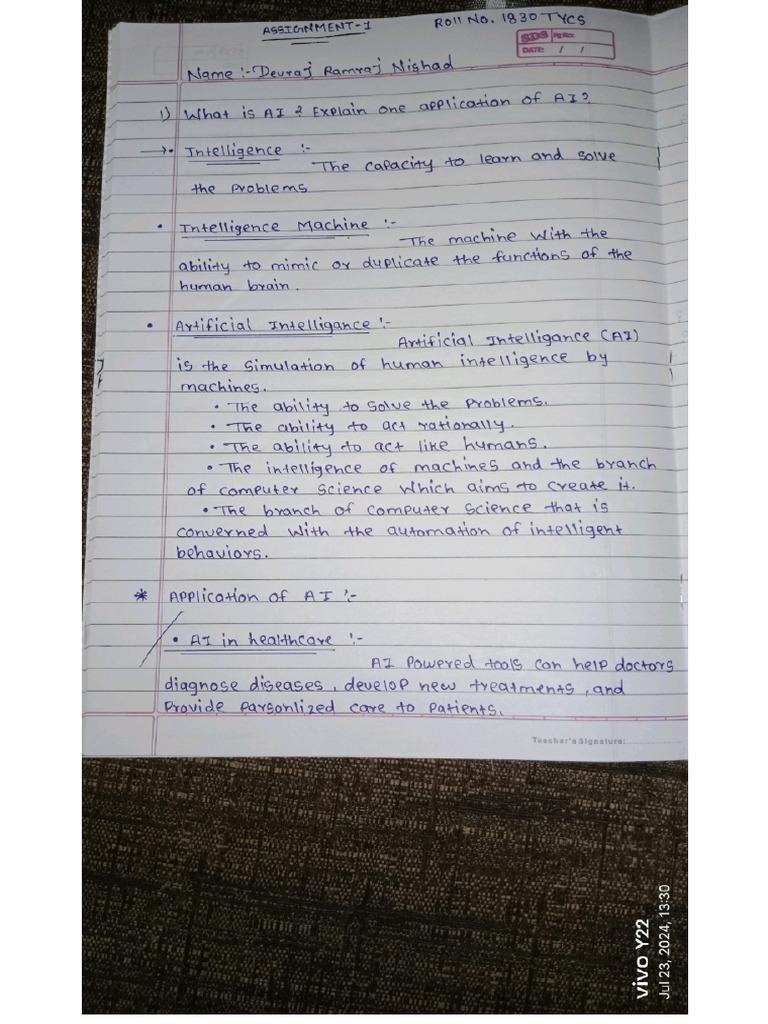 ASSIGNMENT-1
Roll No. 1830 TYCS
SDS PG.NO.:
DATE: / /
Name :- Devraj Ramraj Nishad
1) What is AI ? Explain one application of AI?
→• Intelligence :-
The capacity to learn and solve
the problems
• Intelligence Machine :-
The machine with the
ability to mimic or duplicate the functions of the
human brain.
• Artificial Intelligance :-
Artificial Intelligance (AI)
is the simulation of human intelligence by
machines.
• The ability to solve the problems.
• The ability to act rationally.
• The ability to act like humans.
• The intelligence of machines and the branch
of computer science which aims to create it.
• The branch of computer science that is
converned with the automation of intelligent
behaviors.
* Application of AI :-
• AI in healthcare :-
AI powered tools can help doctors
diagnose diseases, develop new treatments, and
Provide Parsonlized care to patients.
Teacher's Signature:
vivo Y22
Jul 23, 2024, 13:30